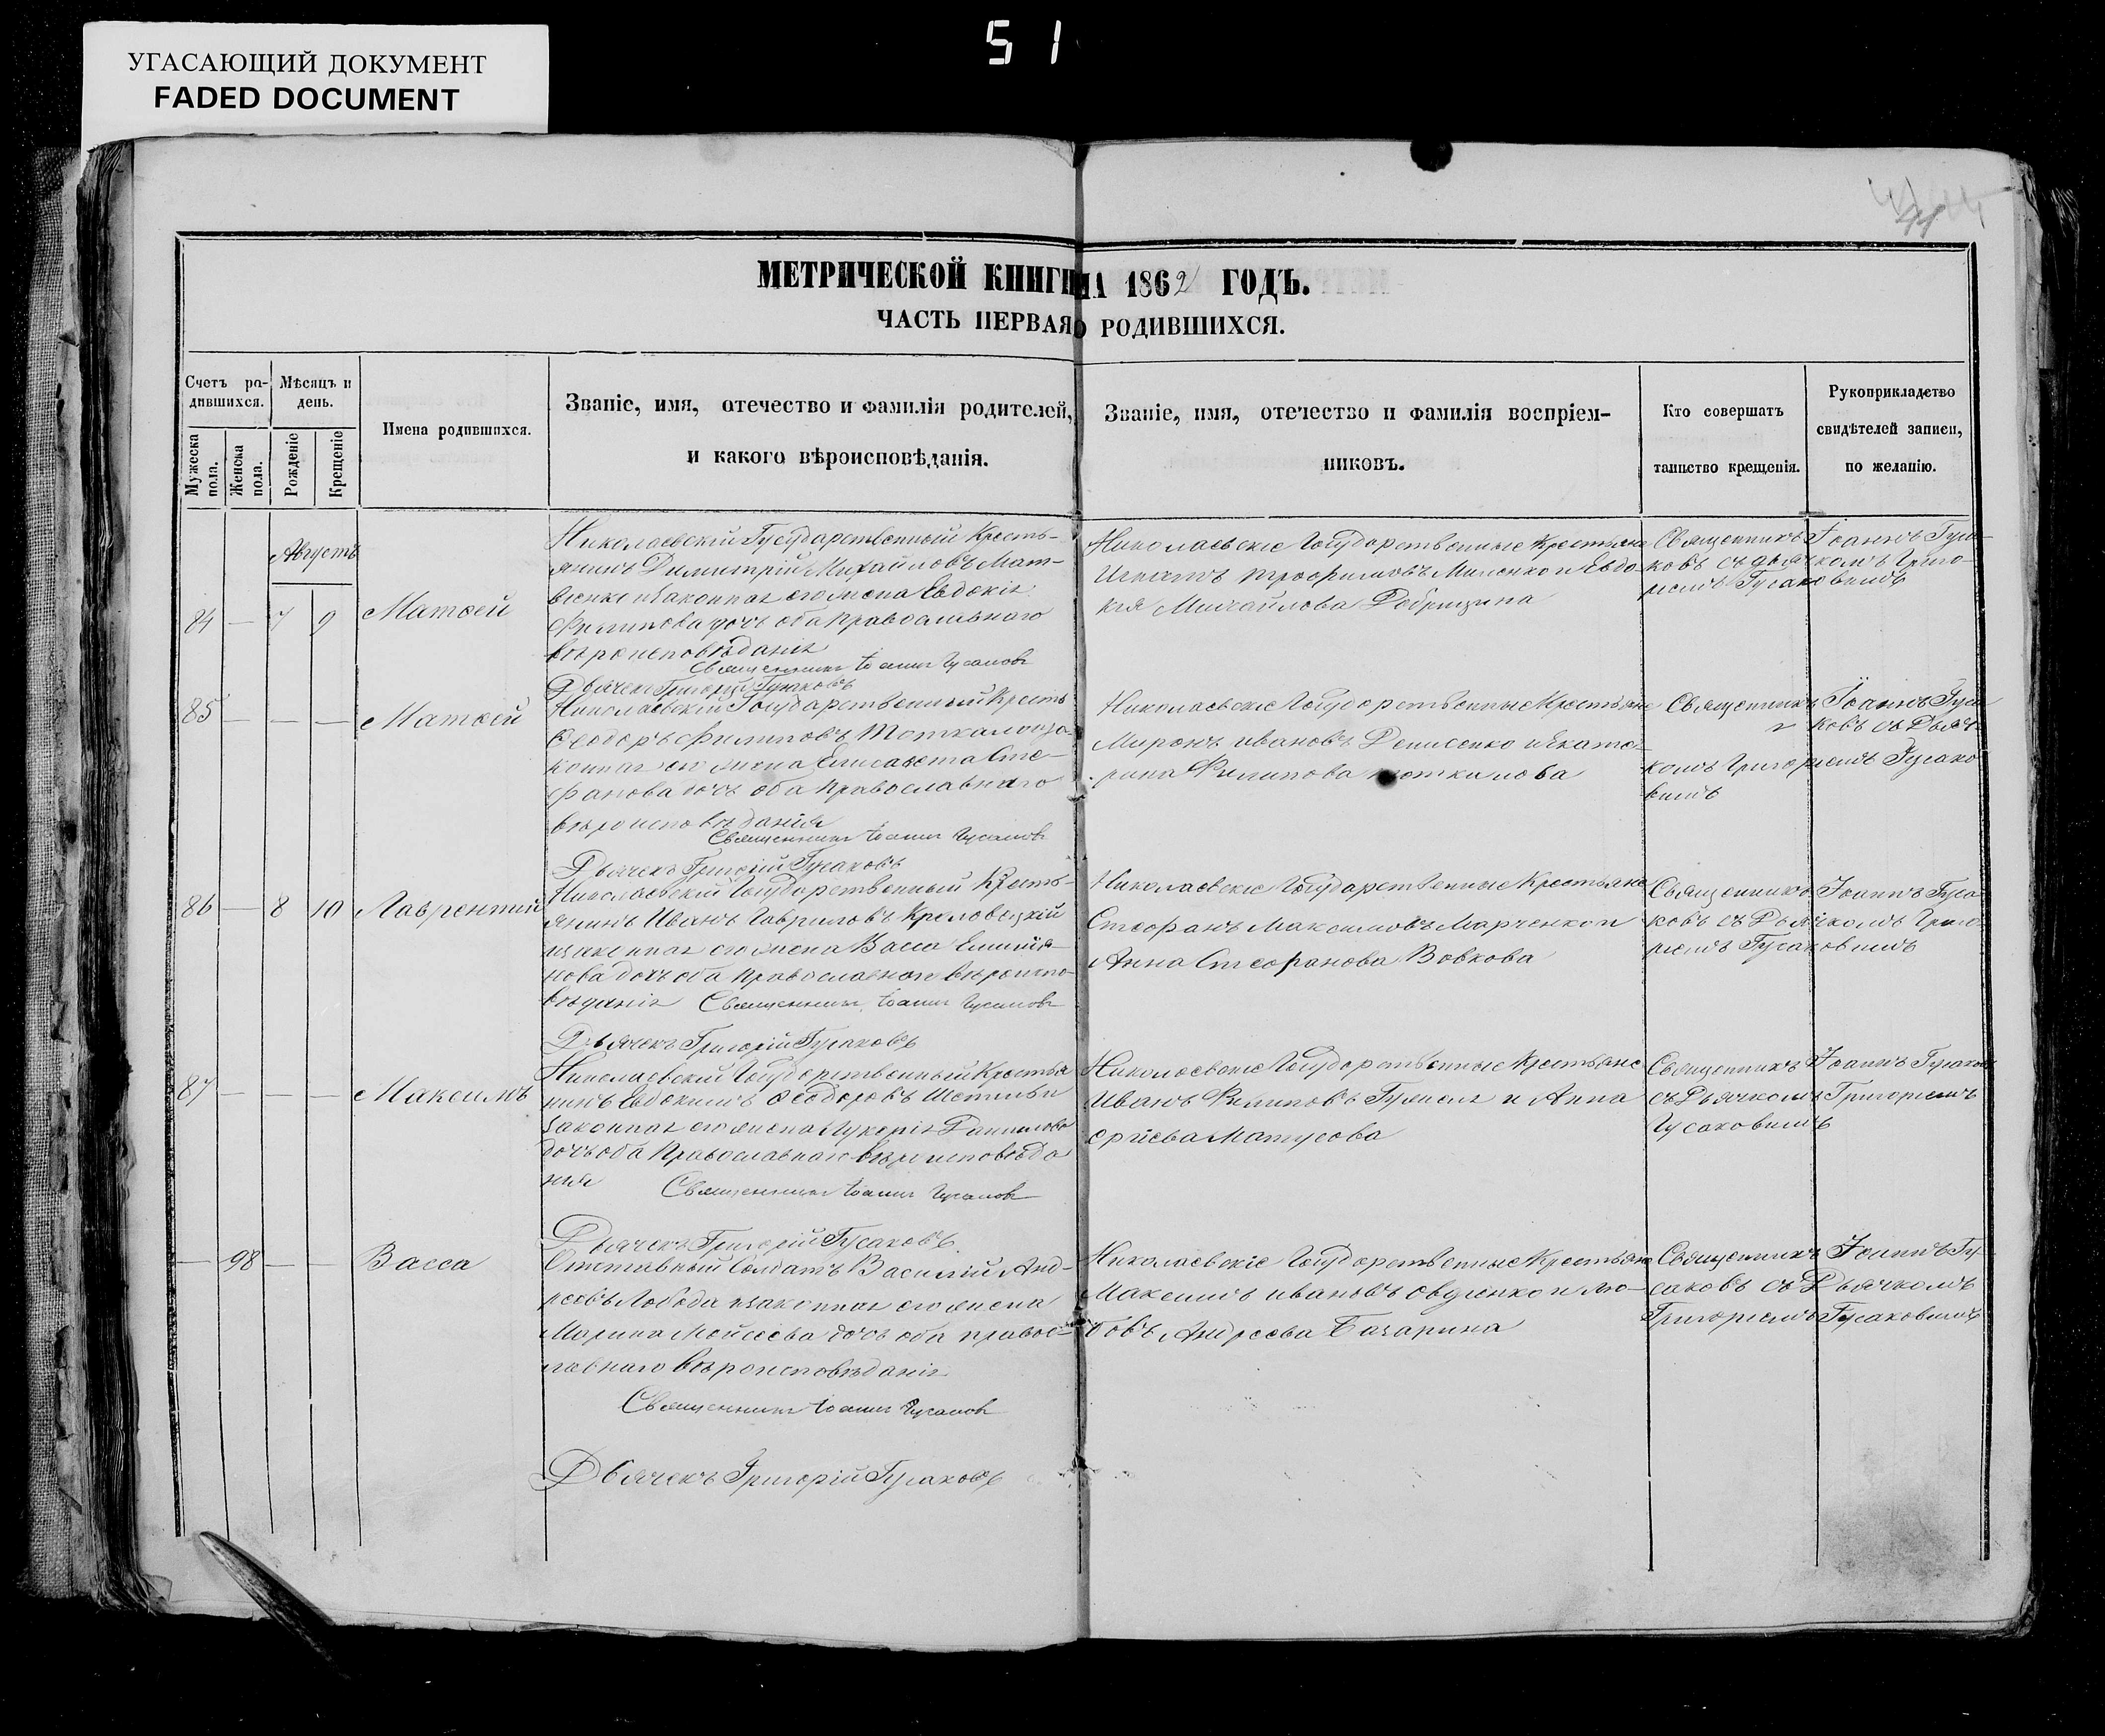 51
УГАСАЮЩИЙ ДОКУМЕНТ
FADED DOCUMENT
МЕТРИЧЕСКОЙ КНИГИ НА 1862 ГОДЪ.
ЧАСТЬ ПЕРВАЯ О РОДИВШИХСЯ.
Счетъ ро-
дившихся.
Мужеска пола.
Женска пола.
Мѣсяцъ и
день.
Рожденіе
Крещеніе
Имена родившихся.
Званіе, имя, отечество и фамилія родителей,
и какого вѣроисповѣданія.
Званіе, имя, отечество и фамилія воспріем-
никовъ.
Кто совершатъ
таинство крещенія.
Рукоприкладство
свидѣтелей записи,
по желанію.
Августъ
84 — 7 9 Матѳей
Николаевскій Государственный Кресть-
янинъ Димитрій Михайловъ Мат-
законная его жена Евдокія
Филипова дочь оба православнаго
вѣроисповѣданія
Священникъ Іоаннъ Гусаковъ
Дьячекъ Григорій Гусаковъ
Николаевскіе Государственные Крестьяне
Игнатъ Трофимовъ Миленко и Евдо-
кія Михайлова
Священникъ Іоаннъ Гуса-
ковъ съ дьячкомъ Григо-
ріемъ Гусаковымъ
85 — — — Матѳей
Николаевскій Государственный Кресть
Ѳеодоръ Филиповъ за-
конная его жена Елисавета Сте-
фанова дочь оба православнаго
вѣроисповѣданія
Священникъ Іоаннъ Гусаковъ
Дьячекъ Григорій Гусаковъ
Николаевскіе Государственные Крестьяне
Миронъ Ивановъ Денисенко и Екате-
рина Филипова
Священникъ Іоаннъ Гуса
ковъ съ Дьяч-
комъ Григоріемъ Гусако
вымъ
86 — 8 10 Лаврентий
Николаевскій Государственный Кресть-
янинъ Иванъ Гавриловъ
изаконная его жена Васса Емилія-
нова дочь оба православнаго вѣроиспо-
вѣданія Священникъ Іоаннъ Гусаковъ
Дьячекъ Григорій Гусаковъ
Николаевскіе Государственные Крестьяне
Стефанъ Максимовъ Марченко и
Анна Стефанова Вовкова
Священникъ Іоаннъ Гуса
ковъ съ Дьячкомъ Григо
ріемъ Гусаковымъ
87 — — — Максимъ
Николаевскій Государственный Крестья
нинъ Евдокимъ Ѳеодоровъ
законная его жена Лукерія Данилова
дочь оба Православнаго вѣроисповѣда
нія Священникъ Іоаннъ Гусаковъ
Дьячекъ Григорій Гусаковъ
Николаевскіе Государственные Крестьяне
Иванъ Филиповъ и Анна
Матусова
Священникъ Іоаннъ Гусаковъ
съ Дьячкомъ Григоріемъ
Гусаковымъ
— 98 — — Васса
Отставный Солдатъ Василій Анд-
реевъ Лобода изаконная его жена
Марина Мойсеева дочь оба правос-
лавнаго вѣроисповѣданія
Священникъ Іоаннъ Гусаковъ
Дьячекъ Григорій Гусаковъ
Николаевскіе Государственные Крестьяне
Максимъ Ивановъ Овдіенко и Лю-
бовь Андреева
Священникъ Іоаннъ Гу-
саковъ съ Дьячкомъ
Григоріемъ Гусаковымъ